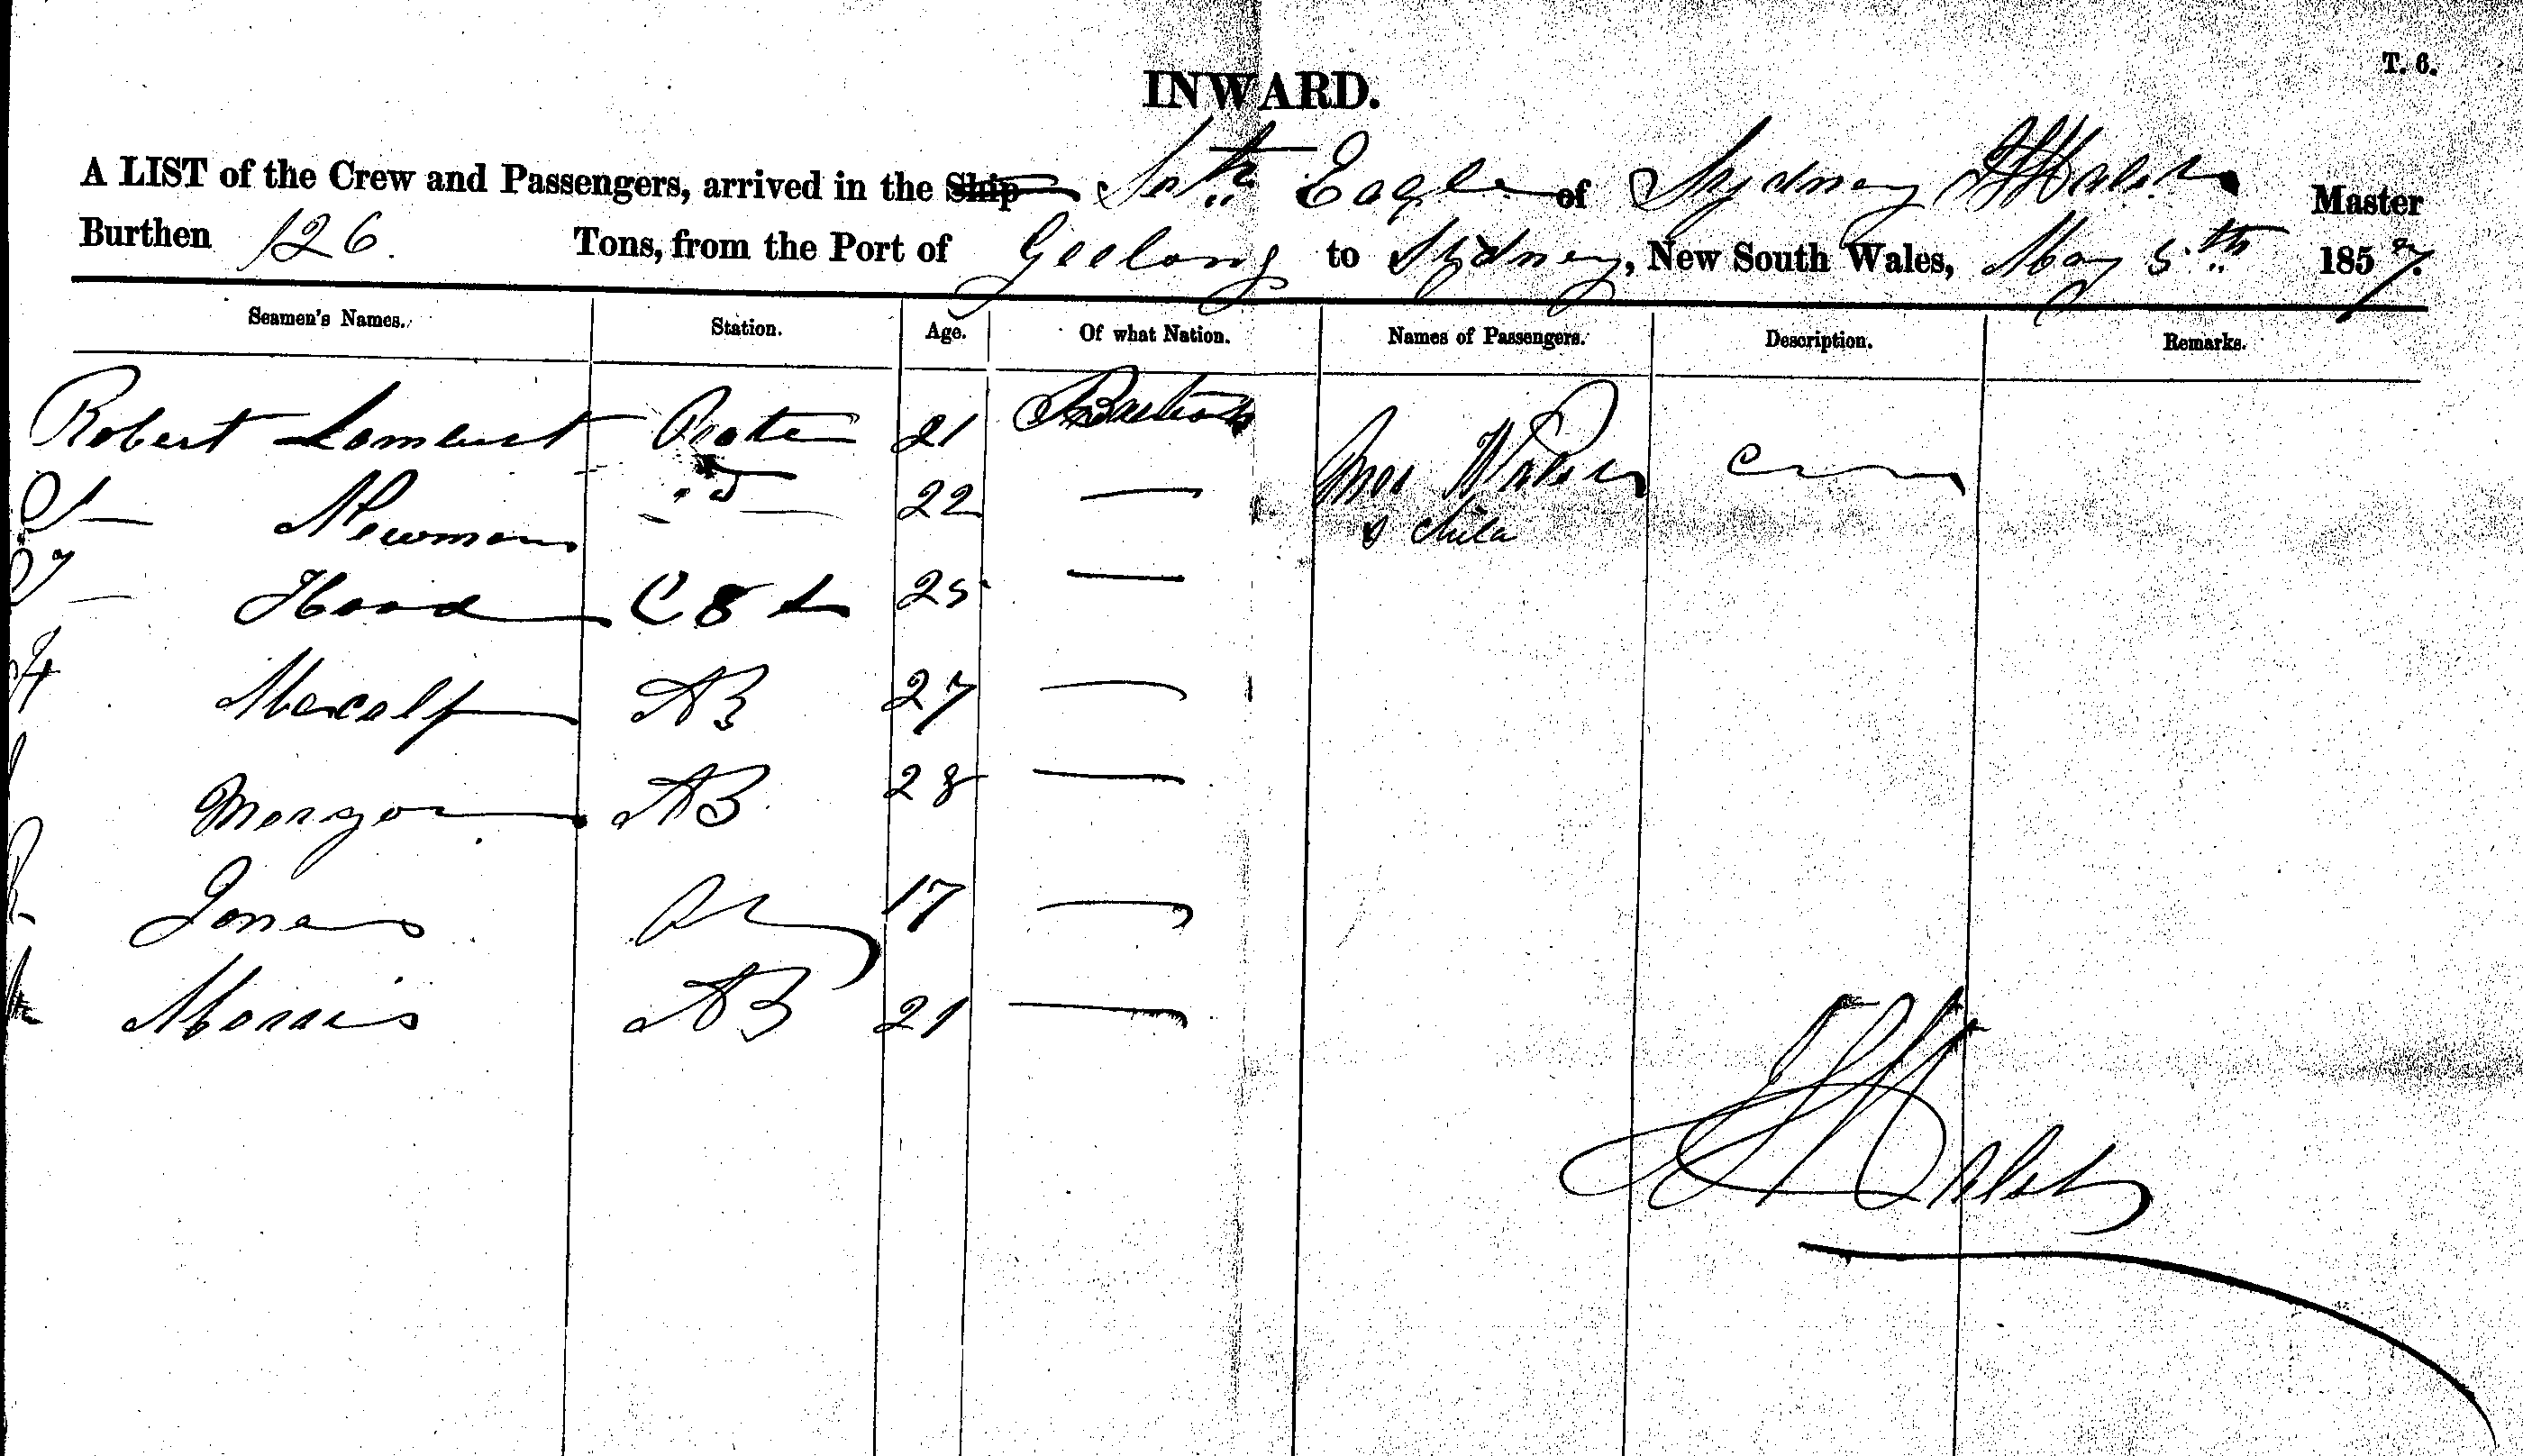 T. 6.
INWARD.
A LIST of the Crew and Passengers, arrived in the Ship Sothn Eagle of Sydney Master
Burthen 126. Tons, from the Port of Geelong to Sydney, New South Wales, May 5th 1857.
Seamen's Names. Station. Age. Of what Nation. Names of Passengers. Description. Remarks.
Robert 21
Newman 22
Hood C & S 25 & child
Metcalf AB 27
Morgan AB 28
Jones 17
Morris AB 21